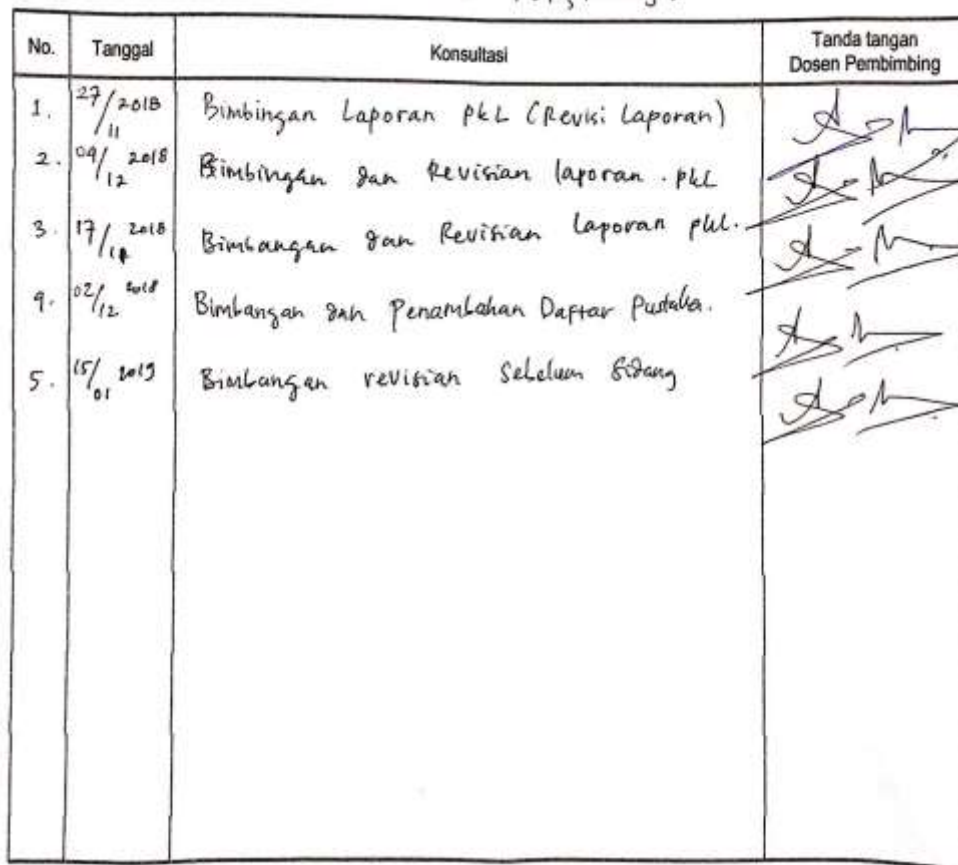 No. Tanggal Konsultasi Tanda tangan
Dosen Pembimbing
1. 27/11 2018 Bimbingan Laporan PKL (Revisi Laporan)
2. 04/12 2018 Bimbingan dan Revisian laporan . pkl
3. 17/12 2018 Bimbangan dan Revisian Laporan pkl.
4. 02/12 2018 Bimbangan dan Penambahan Daftar Pustaka.
5. 15/01 2019 Bimbangan revisian Sebelum Sidang